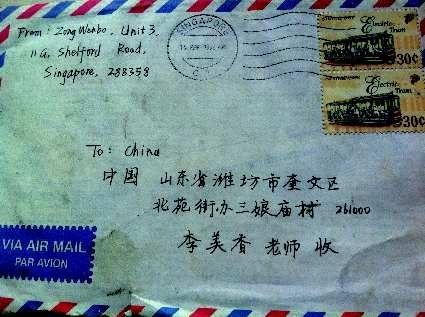 From: Zong Wenbo, Unit 3,
11G, Shelford Road,
Singapore, 288358
SINGAPORE
Electric Tram
30¢
Electric Tram
30¢
To: China
中国 山东省潍坊市奎文区
北苑街办三娘庙村 261000
李美香 老师 收
VIA AIR MAIL
PAR AVION